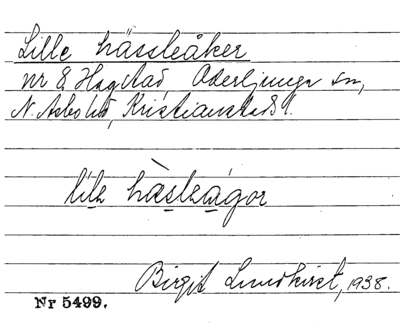 Lille hässleåker
nr 8 Hagstad, Oderljunga sn,
N. Åsbo hd, Kristianstads l.
lìlɛ hàsleågor
Birgit Lundkvist, 1938.
Nr 5499.